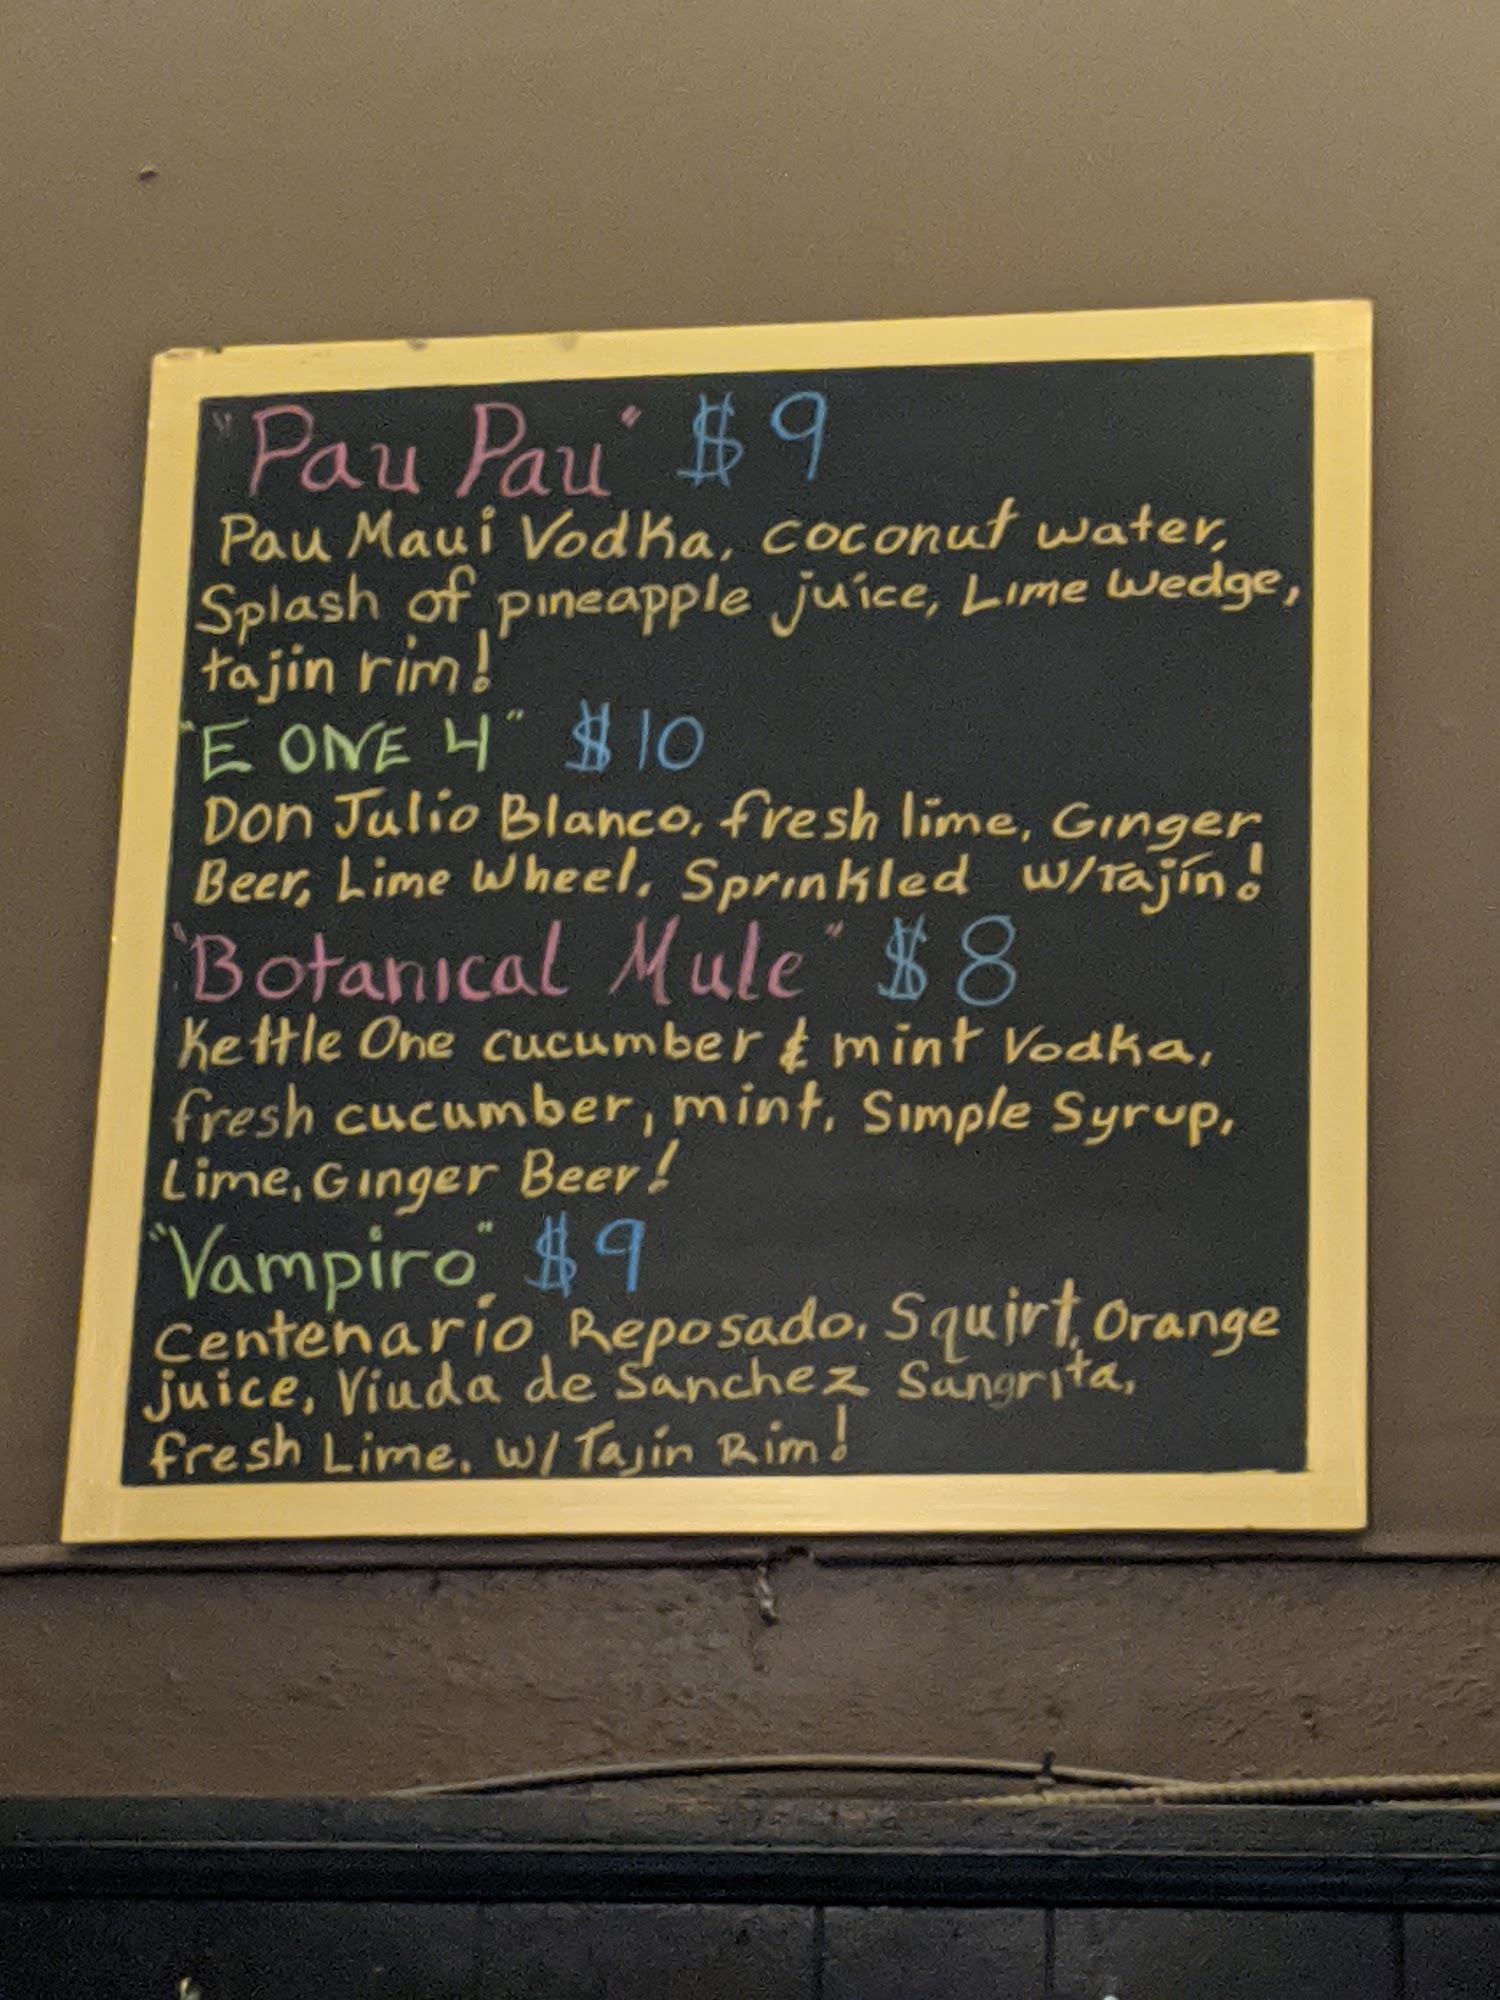 "Pau Pau" $9
Pau Maui Vodka, coconut water,
Splash of pineapple juice, Lime wedge,
tajin rim!
"E ONE 4" $10
Don Julio Blanco, fresh lime, Ginger
Beer, Lime Wheel, Sprinkled w/Tajín!
"Botanical Mule" $8
Kettle One cucumber & mint Vodka,
fresh cucumber, mint, Simple Syrup,
Lime, Ginger Beer!
"Vampiro" $9
Centenario Reposado, Squirt, Orange
juice, Viuda de Sanchez Sangrita,
fresh Lime, w/ Tajín Rim!